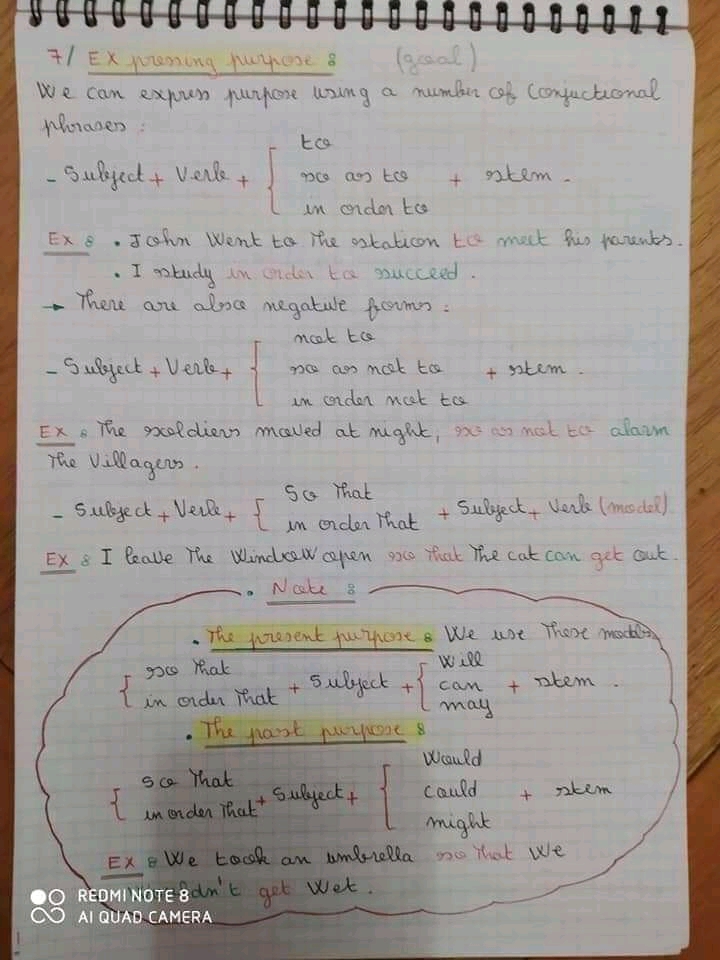 7/ Expressing purpose : (goal)
We can express purpose using a number of Conjuctional
phrases :
to
- Subject + Verb + { so as to + stem .
in order to
Ex : . John Went to The station to meet his parents .
. I study in order to succeed .
→ There are also negative forms :
not to
- Subject + Verb + { so as not to + stem .
in order not to
Ex : The soldiers moved at night, so as not to alarm
The Villagers .
- Subject + Verb + { So That
in order That + Subject + Verb (model)
Ex : I leave The Window open so that The cat can get out .
. Note :
. The present purpose : We use These models
{ so That
in order That + Subject + { Will
can
may + stem .
. The past purpose :
{ so That
in order That + Subject + { Would
could
might + stem
Ex : We took an umbrella so That We
get Wet .
REDMI NOTE 8
AI QUAD CAMERA